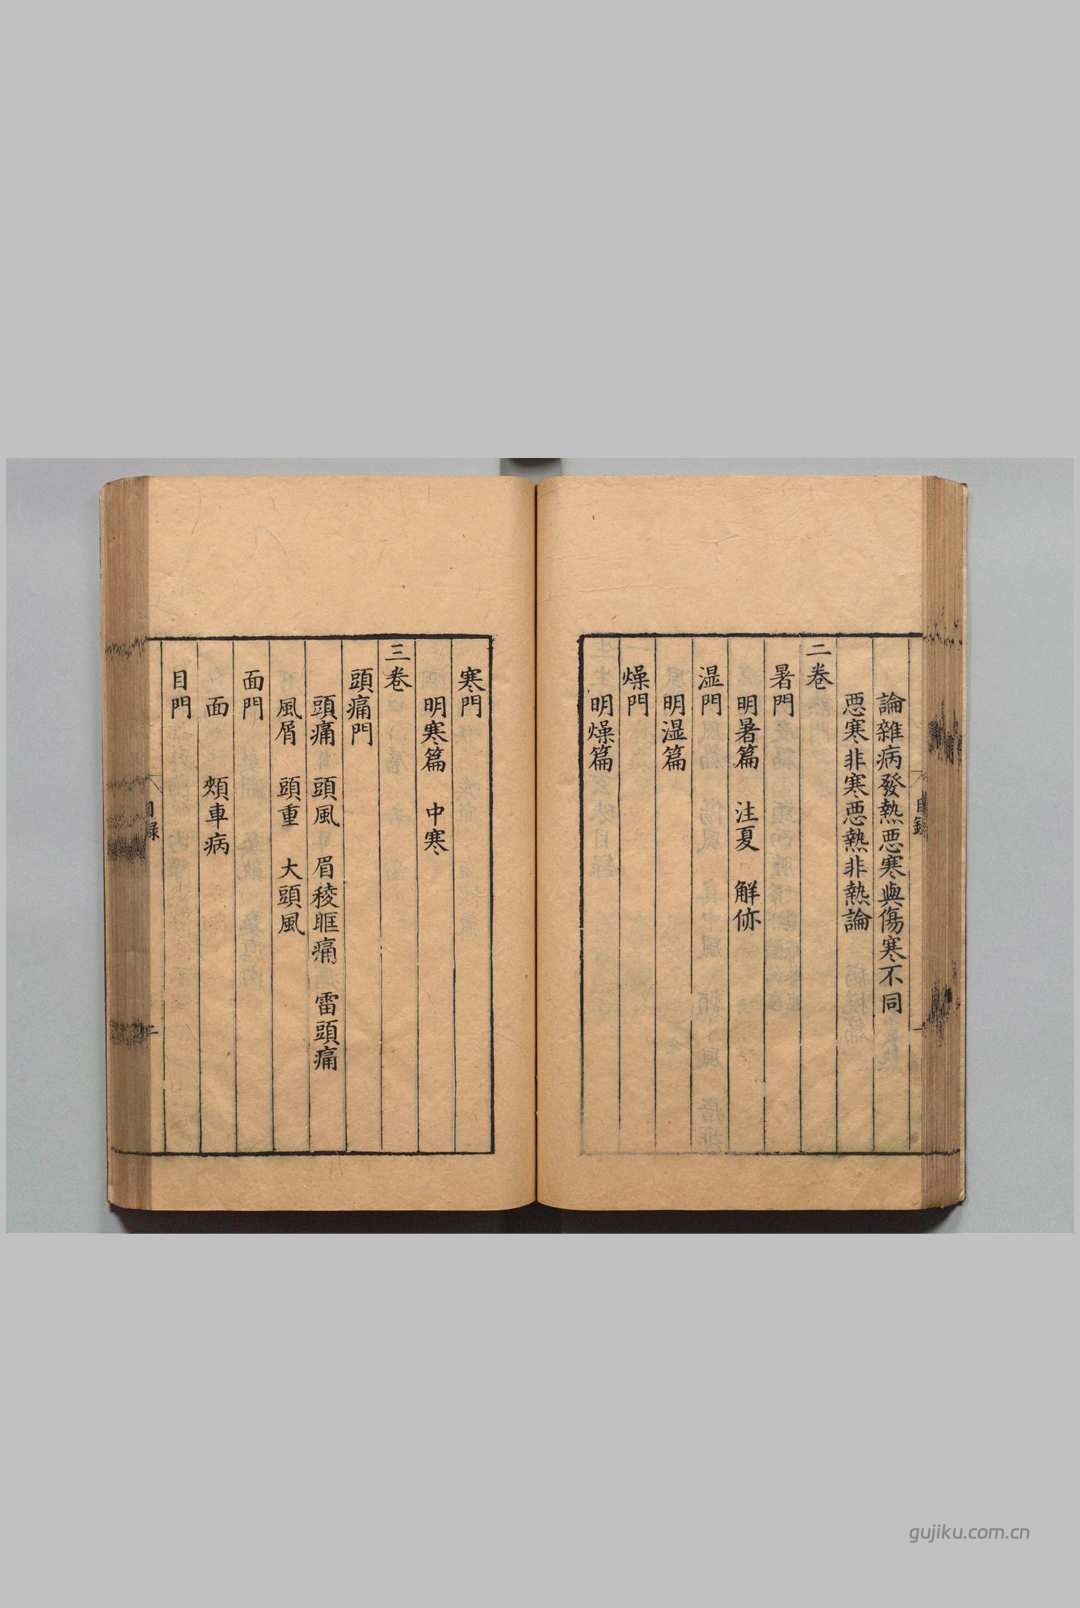 論雜病發熱惡寒與傷寒不同
惡寒非寒惡熱非熱論
二卷
暑門
明暑篇　注夏　解㑊
湿門
明湿篇
燥門
明燥篇
寒門
明寒篇　中寒
三卷
頭痛門
頭痛　頭風　眉稜眶痛　雷頭痛
風屑　頭重　大頭風
面門
面　頰車病
目門
目錄
目錄
gujiku.com.cn